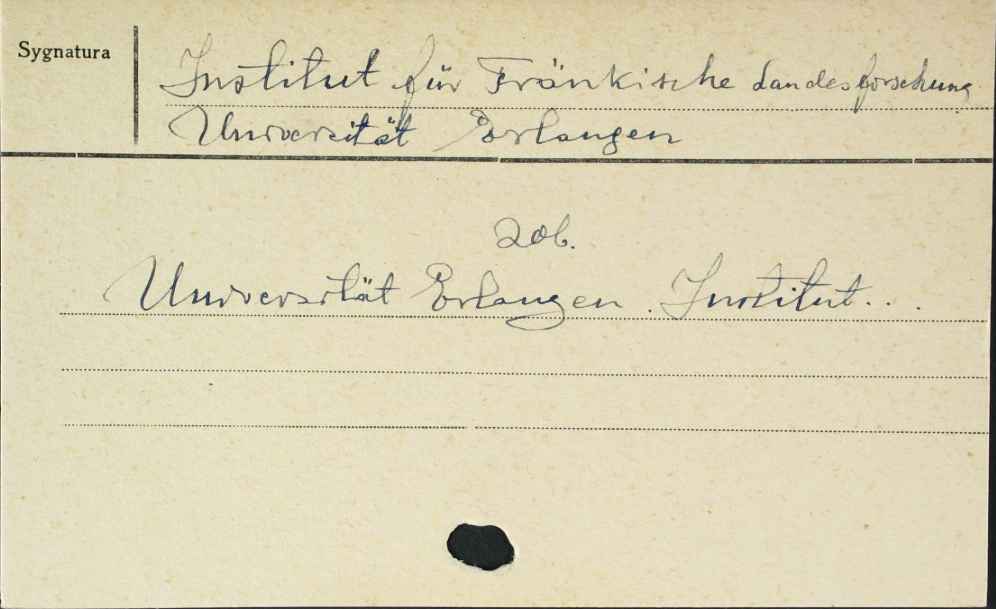 Sygnatura
Institut für Fränkische Landesforschung
Universität Erlangen
zob.
Universität Erlangen. Institut...